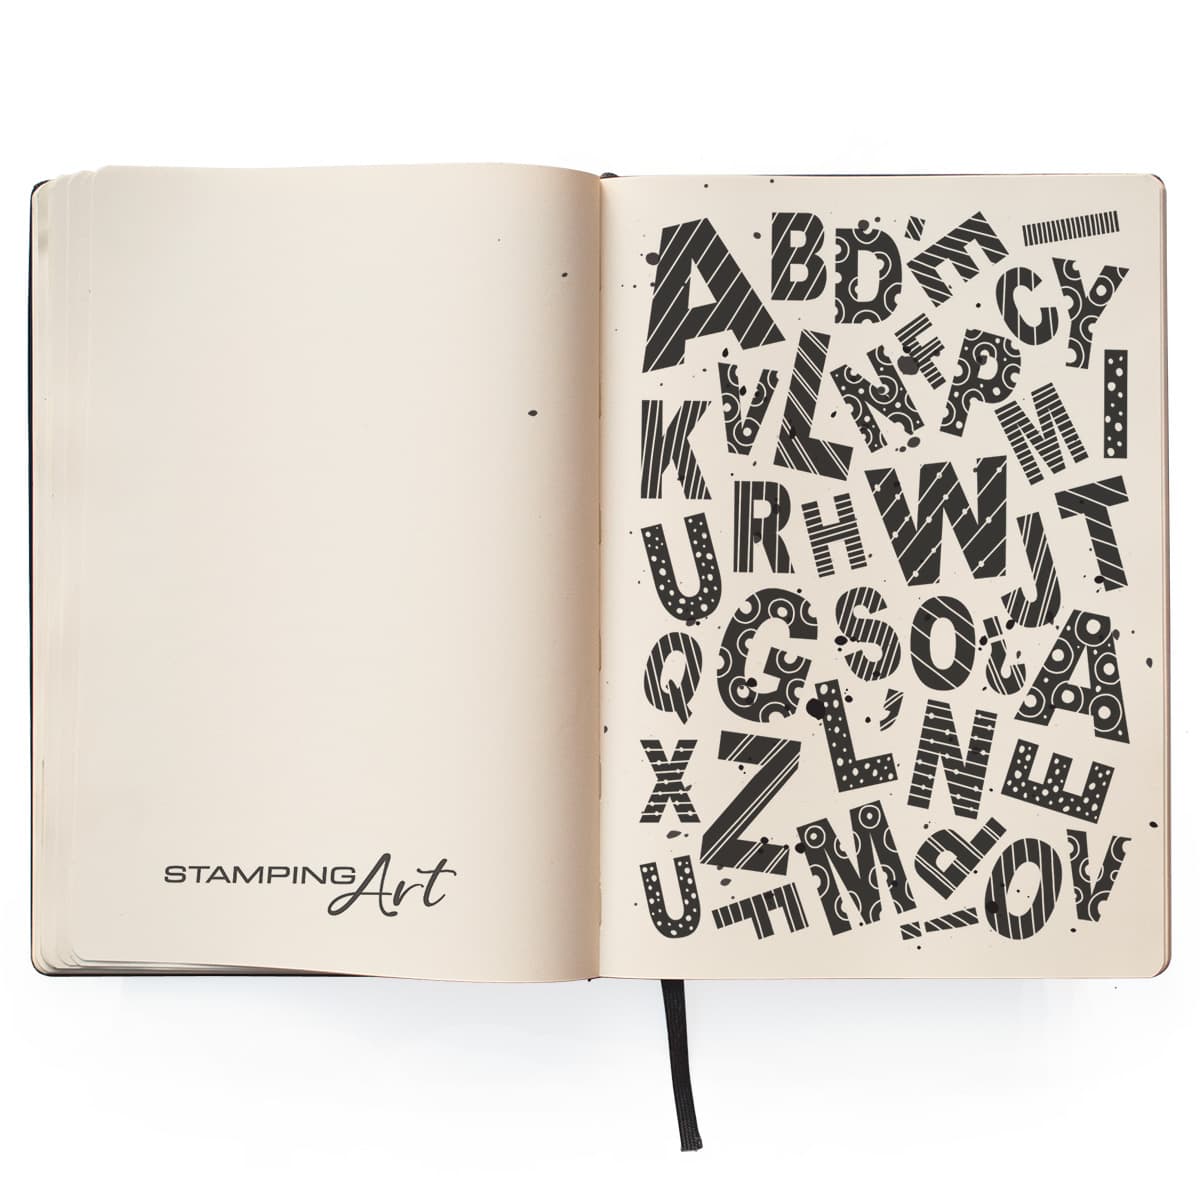 STAMPING Art
A B D É C Y
K V L N F P M I
U R H W J T
Q G S O ¿ A
X Z L , N E
U F M ! P O V